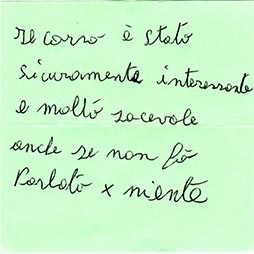 se corso è stato
sicuramente interessante
e molto socevole
anche se non fò
Parlato x niente